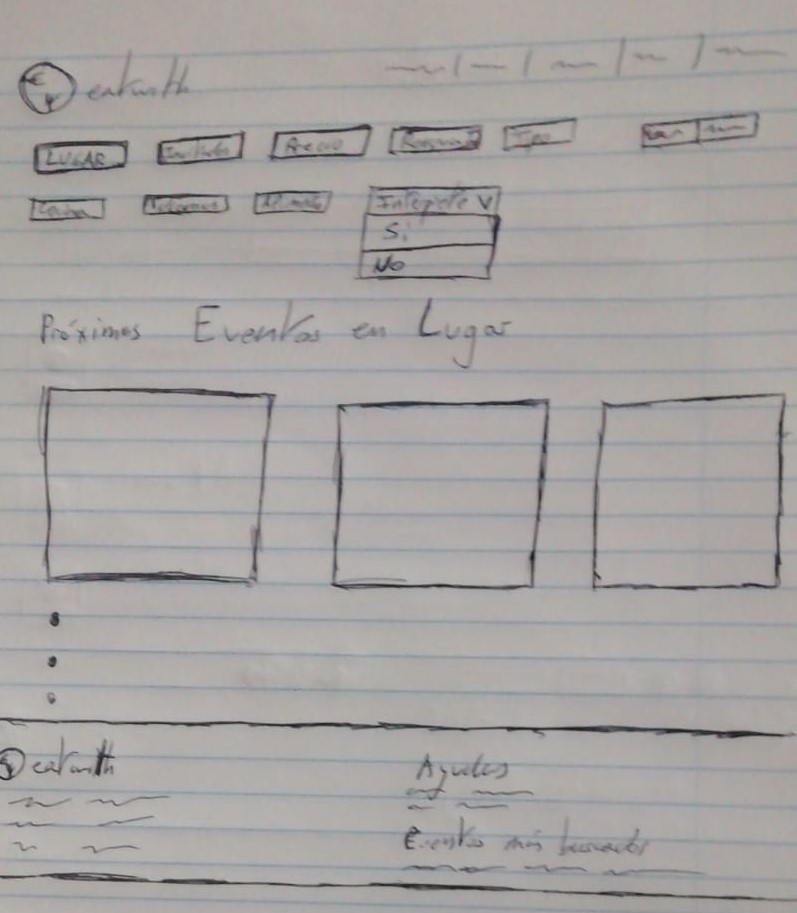 eatwith
LUGAR Invitados Precio Tipo
Cocina Idiomas Intérprete V
Si
No
Próximos Eventos en Lugar
eatwith
Ayudas
Eventos más buscados